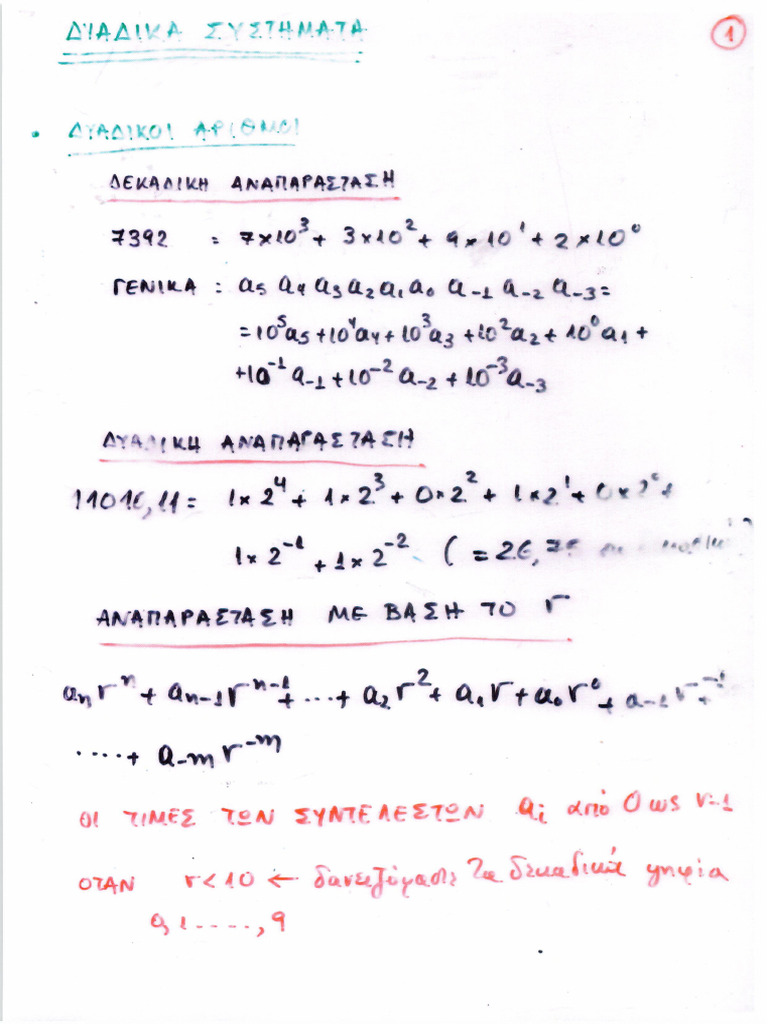 ΔΥΑΔΙΚΑ ΣΥΣΤΗΜΑΤΑ
1
• ΔΥΑΔΙΚΟΙ ΑΡΙΘΜΟΙ
ΔΕΚΑΔΙΚΗ ΑΝΑΠΑΡΑΣΤΑΣΗ
7392 = 7×10³ + 3×10² + 9×10¹ + 2×10⁰
ΓΕΝΙΚΑ : a₅ a₄ a₃ a₂ a₁ a₀ a₋₁ a₋₂ a₋₃ =
= 10⁵a₅ + 10⁴a₄ + 10³a₃ + 10²a₂ + 10⁰a₁ +
+10⁻¹a₋₁ + 10⁻²a₋₂ + 10⁻³a₋₃
ΔΥΑΔΙΚΗ ΑΝΑΠΑΡΑΣΤΑΣΗ
11010,11 = 1×2⁴ + 1×2³ + 0×2² + 1×2¹ + 0×2⁰ +
1×2⁻¹ + 1×2⁻² ( = 26,75
ΑΝΑΠΑΡΑΣΤΑΣΗ ΜΕ ΒΑΣΗ ΤΟ r
aₙrⁿ + aₙ₋₁rⁿ⁻¹ + ... + a₂r² + a₁r + a₀r⁰ + a₋₁r⁻¹ +
.... + a₋ₘr⁻ᵐ
ΟΙ ΤΙΜΕΣ ΤΩΝ ΣΥΝΤΕΛΕΣΤΩΝ aᵢ από 0 ως r-1
ΟΤΑΝ r<10 ← δανειζόμαστε τα δεκαδικά ψηφία
0,1....., 9